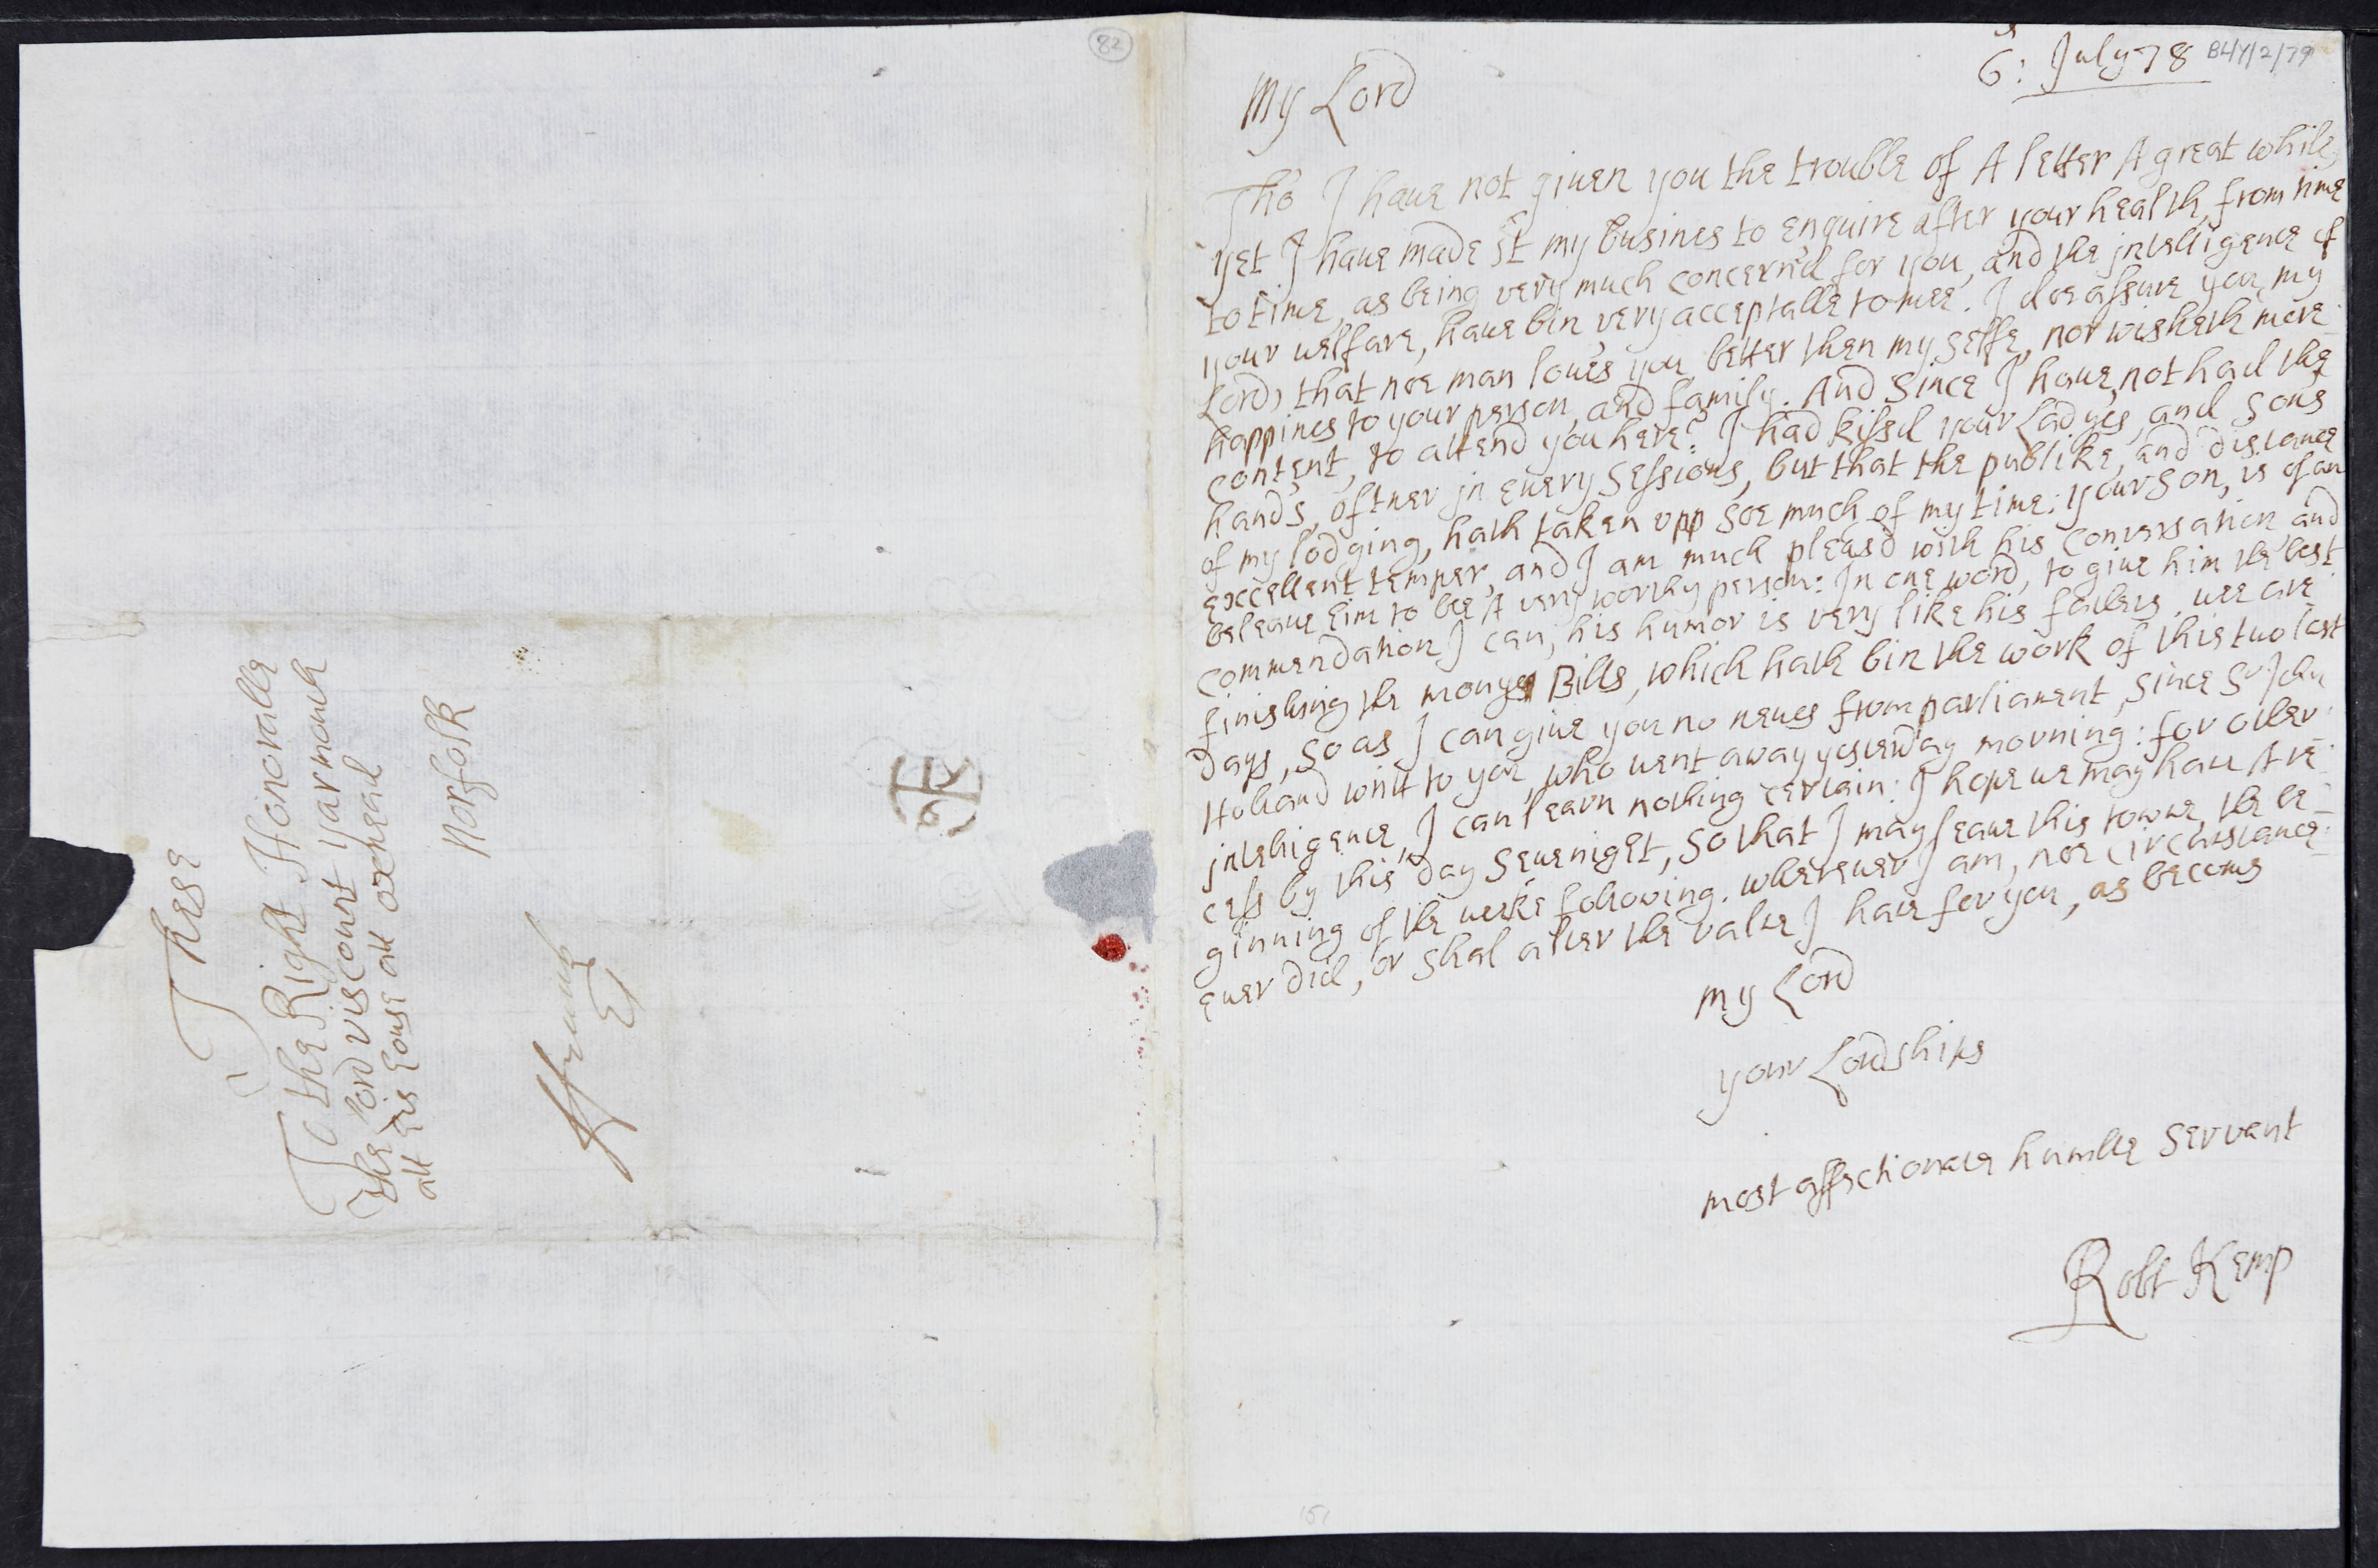 82
These
To the Right Honoralle
the Lord viscount yarmouth
att his house att oxnead
Norfolk
ffrank
IY
6
6: July 78
BL/Y/2/79
My Lord
Tho I haue not giuen you the trouble of A letter A great while,
yet I haue made it my busines to enquire after your health, from time
to time, as being very much concern'd for you, and the intelligence of
your welfare, haue bin very acceptable to mee. I doe assure you, my
Lord, that noe man loues you better then my selfe, nor wisheth more
happines to your person, and family. And Since I haue not had the
content, to attend you here? I had kissd your Ladyes, and sons
hands, oftner in euery Sessions, but that the publike, and distance
of my lodging, hath taken upp soe much of my time: your son, is of an
excellent temper, and I am much pleasd with his conversation, and
beleaue him to bee A very worthy person: In one word, to giue him the best
commendation I can, his humor is very like his fathers. wee are
finishing the money Bills, which hath bin the work of this two last
days, so as I can giue you no newes from parliament, since Sr John
Holland writt to you, who went away yesterday morning: for other
intelligence, I can learn nothing certain: I hope we may haue A re-
cess by this day sevenight, so that I may leaue this towne, the be-
ginning of the weeke following. whereuer I am, noe circumstance
euer did, or shal alter the value I haue for you, as becoms
my Lord
your Lordships
most affectionate humble servant
Robt Kemp
151